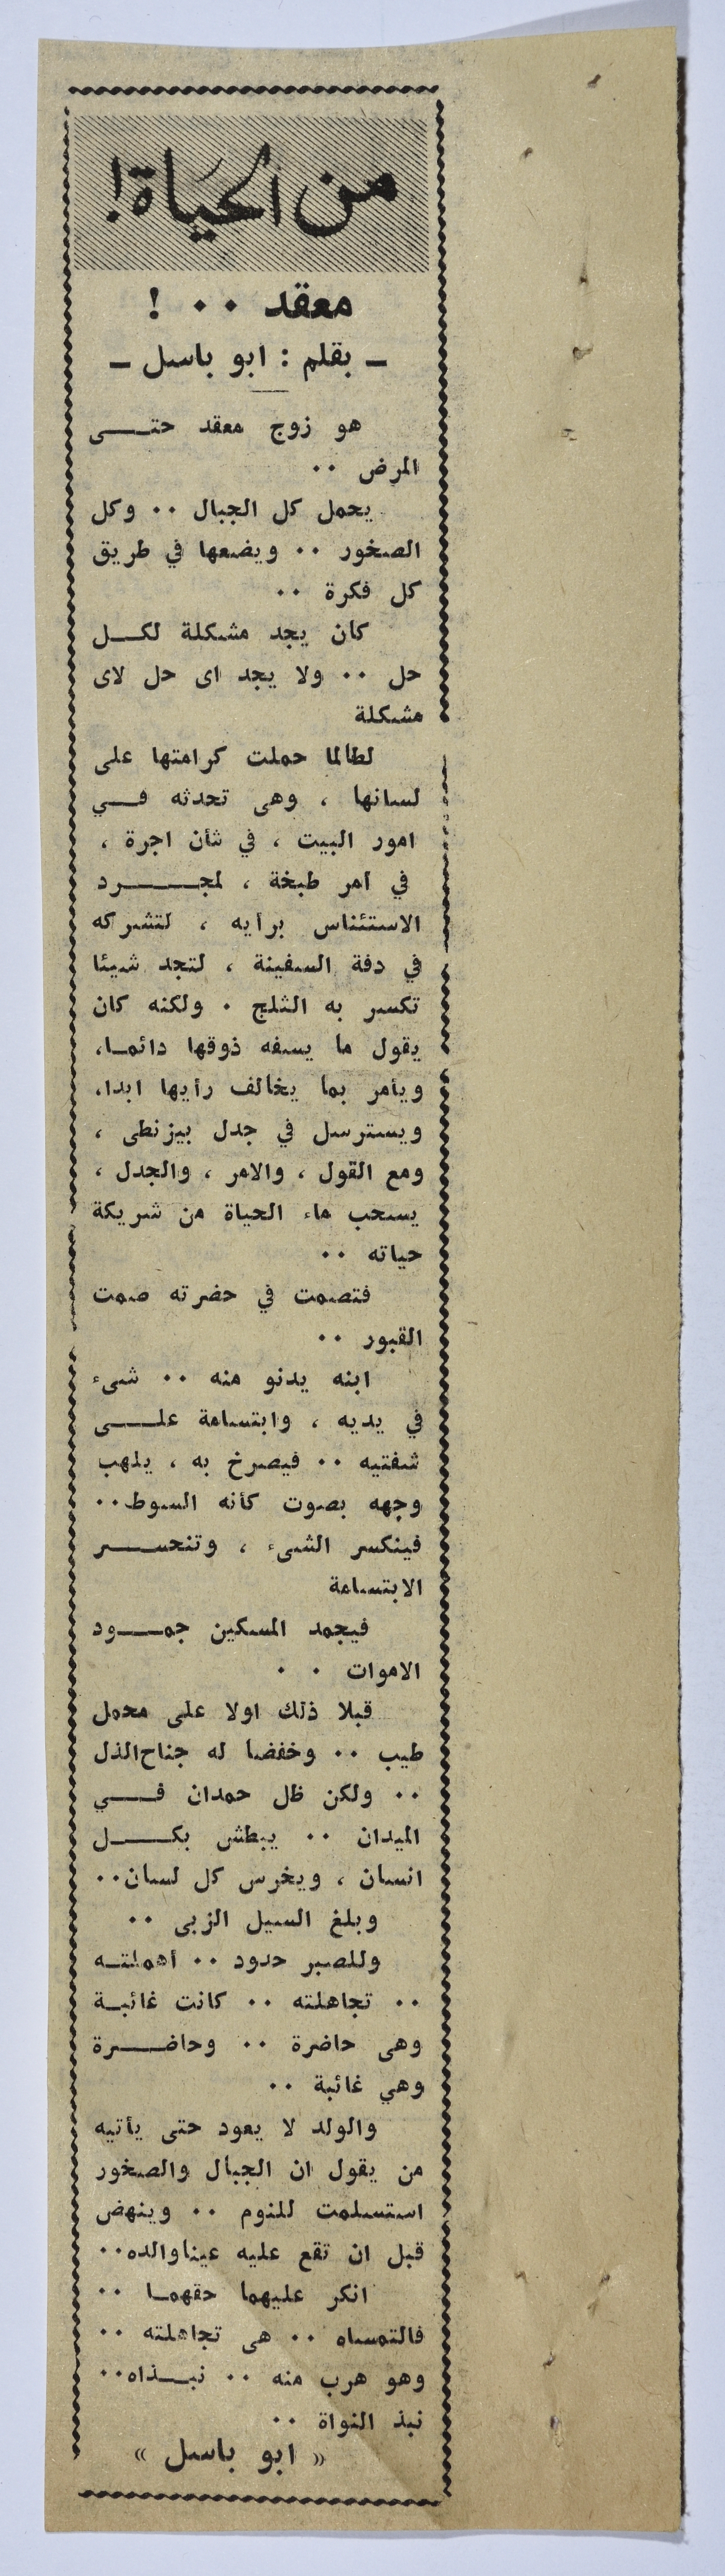 من الحياة!
معقد ٠٠ !
ـ بقلم : ابو باسل ـ
هو زوج معقد حتى
المرض ٠٠
يحمل كل الجبال ٠٠ وكل
الصخور ٠٠ ويضعها في طريق
كل فكرة ٠٠
كان يجد مشكلة لكل
حل ٠٠ ولا يجد اى حل لاى
مشكلة
لطالما حملت كرامتها على
لسانها ، وهى تحدثه في
امور البيت ، في شأن اجرة ،
في أمر طبخة ، لمجرد
الاستئناس برأيه ، لتشركه
في دفة السفينة ، لتجد شيئا
تكسر به الثلج ٠ ولكنه كان
يقول ما يسفه ذوقها دائما،
ويأمر بما يخالف رأيها ابدا،
ويسترسل في جدل بيزنطى ،
ومع القول ، والامر ، والجدل ،
يسحب ماء الحياة من شريكة
حياته ٠٠
فتصمت في حضرته صمت
القبور ٠٠
ابنه يدنو منه ٠٠ شىء
في يديه ، وابتسامة على
شفتيه ٠٠ فيصرخ به ، يلهب
وجهه بصوت كأنه السوط٠٠
فينكسر الشىء ، وتنحسر
الابتسامة
فيجمد المسكين جمود
الاموات ٠ ٠
قبلا ذلك اولا على محمل
طيب ٠٠ وخفضا له جناح الذل
٠٠ ولكن ظل حمدان في
الميدان ٠٠ يبطش بكل
انسان ، ويخرس كل لسان٠٠
وبلغ السيل الزبى ٠٠
وللصبر حدود ٠٠ أهملته
٠٠ تجاهلته ٠٠ كانت غائبة
وهى حاضرة ٠٠ وحاضرة
وهي غائبة ٠٠
والولد لا يعود حتى يأتيه
من يقول ان الجبال والصخور
استسلمت للنوم ٠٠ وينهض
قبل ان تقع عليه عينا والده٠٠
انكر عليهما حقهما ٠٠
فالتمساه ٠٠ هى تجاهلته ٠٠
وهو هرب منه ٠٠ نبذاه٠٠
نبذ النواة ٠٠
« ابو باسل »